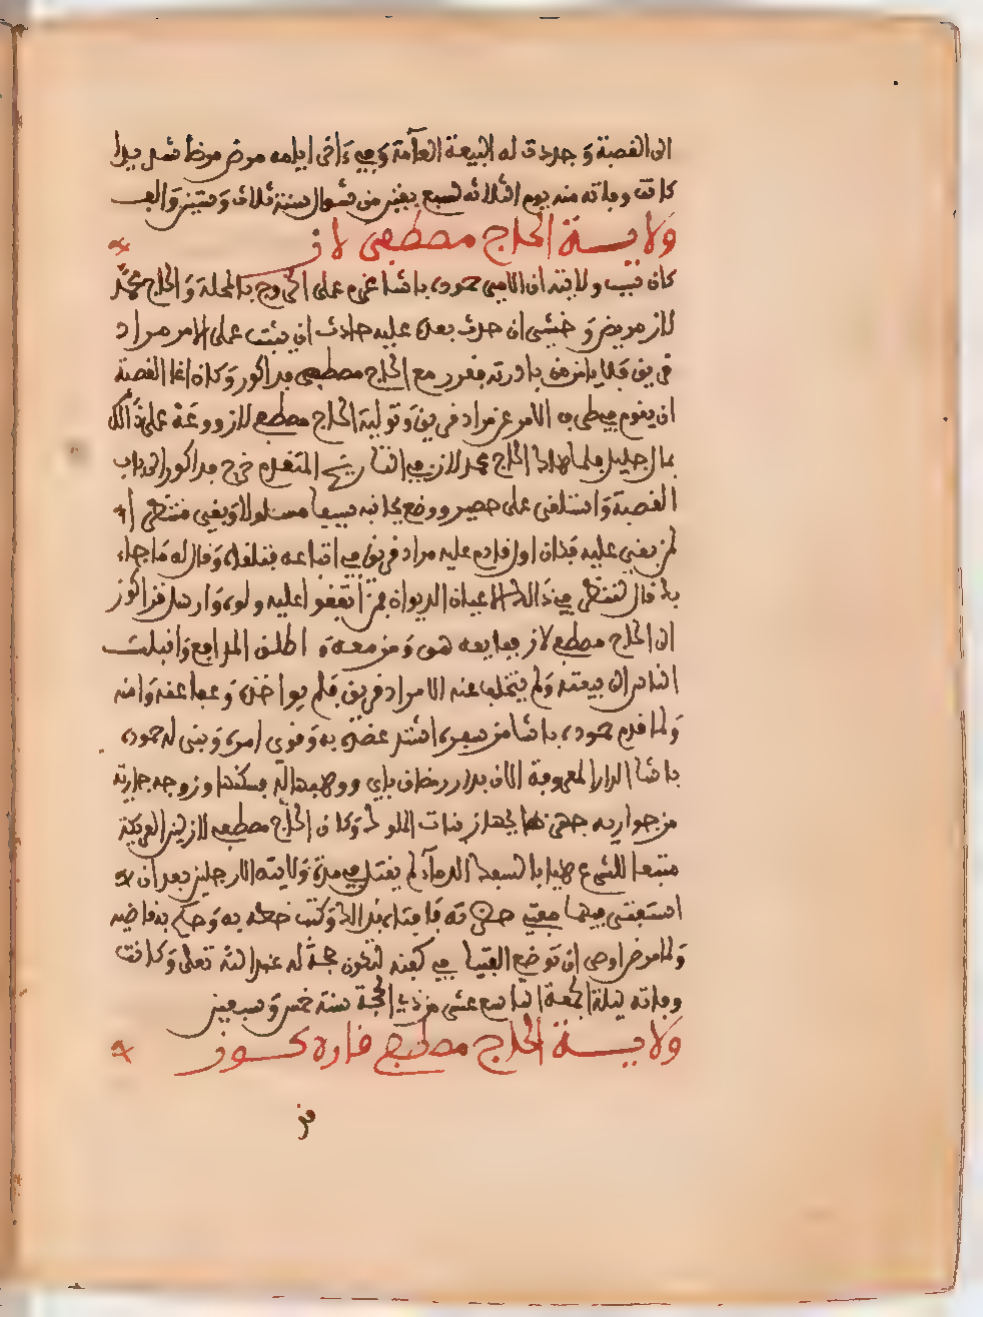 الى القصبة وَجددت له البيعة العآمة وَفي ءَاخر ايامه مرض مرضا شديدا
كانت وفاته منه يوم الثلاثه لسبع بقين من شوال سنة ثلاث وَستين وَالف
وَلايـــة الحاج مصطفى لاز
كان سبب ولايته ان الامير حمودة باشا عزم على الخروج بالمحلة وَالحاج محمد
لاز مريض وَخشي ان حدث بعده عليه حادث ان يثبت على الامر مراد
ان يقوم فيطير الامر عن مراد فريق وَتولية الحاج مصطفى لاز ووعده على ذَالك
بمال جليل فلما هلك الحاج محمد لاز في التاريخ المتقدم خرج قراكوز الى باب
القصبة وَاستلقى على حصير ووضع بجانبه سيفا مسلولا وَبقي ينتظر
من يقبل عليه فكان اول قادم عليه مراد فريق في اتباعه فتلقاه وَقال له مَا جاء
بك قال لننظر في ذَالك الاعيان الديوان فمن اتفقوا عليه ولوه وَارسل قراكوز
الى الحاج مصطفى لاز فبايعه هو وَمن معه وَاطلق المدافع وَاقبلت
الناس الى بيعته وَلم يتخلف عنه الا مراد فريق فلم يواخذه وَعفا عنه وَامنه
وَلما قدم حمودة باشا من سفره اشتد عضده به وَقوي امره وَبنى له حمودة
باشا الدار المعروفة الان بدار رمضان باي ووهبها له فسكنها وزوجه جارية
من جواريه جهزها بجهاز بنات الملوك وَكان الحاج مصطفى لاز لين العريكة
متبعا للشرع هيابا لسفك الدمآ لم يقتل في مدة وَلايته الا رجلين بعد ان
استفتى فيهما مفتي حضرته فافتاه بذالك وَكتب خطه به وَحكم به قاضيه
وَلما مرض اوصى ان توضع الفتيا في كفنه لتكون حجة له عند الله تعلى وَكانت
وفاته ليلة الجمعة التاسع عشر من ذي الحجة سنة خمس وَسبعين
وَلايـــة الحاج مصطفى قاره كـــوز